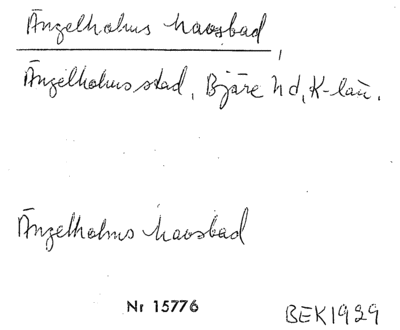 Ängelholms havsbad,
Ängelholms stad, Bjäre hd, K-län.
Ängelholms havsbad
Nr 15776 BEK1929